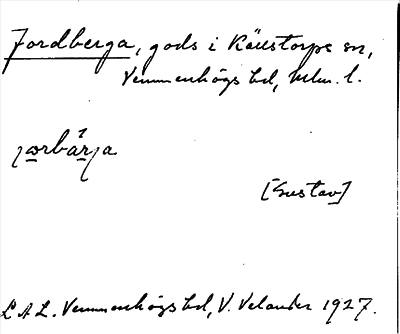 Jordberga, gods i Källstorps sn,
Vemmenhögs hd, Mlm. l.
jorbärja
[Gustav]
L A L. Vemmenhögs hd, V. Velander 1927.